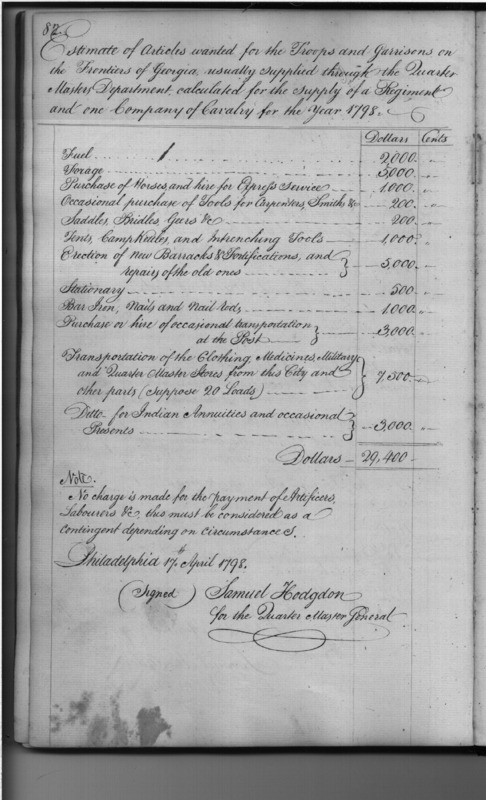 82.
Estimate of Articles wanted for the Troops and Garrisons on
the Frontiers of Georgia, usually supplied through the Quarter
Masters Department, calculated for the supply of a Regiment
and one Company of Cavalry for the Year 1798.
Dollars Cents
Fuel 2,000
Forage 5,000
Purchase of Horses, and hire for Express Service 1,000
Occasional purchase of Tools for Carpenters, Smiths, &c 200
Saddles, Bridles, Gears &c 200
Tents, Camp Kettles, and Intrenching Tools 1,000
Erection of New Barracks & Fortifications, and
repairs of the old ones 5,000
Stationary 500
Bar Iron, Nails and Nail rods 1,000
Purchase or hire of occasional transportation
at the Post 3,000
Transportation of the Clothing, Medicines, Military
and Quarter Master Stores from this City and
other parts (suppose 20 Loads) 7,500
Ditto for Indian Annuities and occasional
Presents 3,000
Dollars 29,400
Note.
No charge is made for the payment of Artificers,
Labourers &c, this must be considered as a
Contingent depending on Circumstances.
Philadelphia 17th April 1798.
(Signed) Samuel Hodgdon
for the Quarter Master General